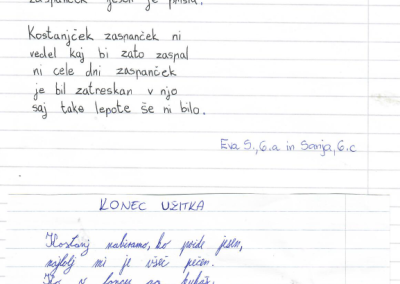 zaspanček jesen je prišla.
Kostanjček zaspanček ni
vedel kaj bi zato zaspal
ni cele dni zaspanček
je bil zatreskan v njo
saj take lepote še ni bilo.
Eva S., 6.a in Sanja, 6.c
KONEC UŽITKA
Kostanj nabiramo, ko pride jesen,
najbolj mi je všeč pečen.
Ko v loncu ga kuhaš,